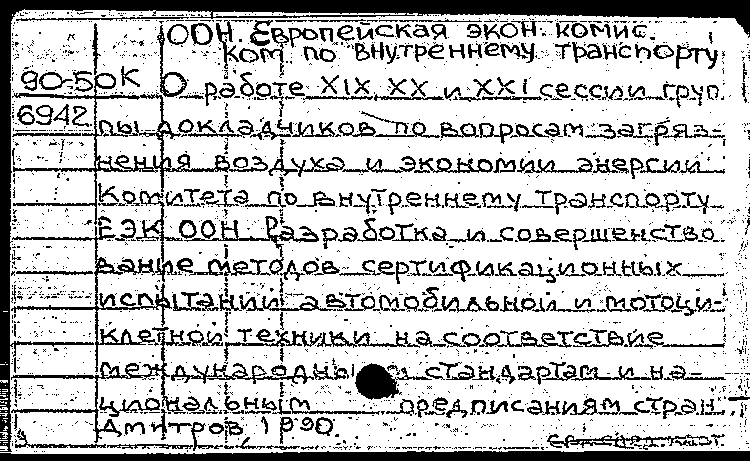 ООН. Европейская экон. комис.
Ком по внутреннему транспорту
90-50К О работе XIX, XX и XXI сессии груп
6942 пы докладчиков по вопросам загряз-
нения воздуха и экономии энергии
Комитета по внутреннему транспорту
ЕЭК ООН. Разработка и совершенство
вание методов сертификационных
испытаний автомобильной и мотоци-
клетной техники на соответствие
международным стандартам и на-
циональным предписаниям стран.
Дмитров, 1990